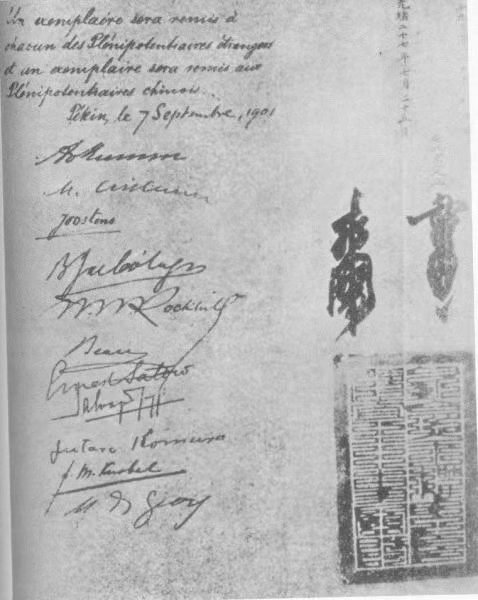 Un exemplaire sera remis à
chacun des Plénipotentiaires étrangers
et un exemplaire sera remis aux
Plénipotentiaires chinois.
Pékin, le 7 Septembre, 1901
A v Mumm
M. Czikann
Joostens
B J de Cólogan
W. W. Rockhill
Beau
Ernest Satow
Salvago
Jutaro Komura
F. M. Knobel
M de Giers
光緒二十七年七月二十五日